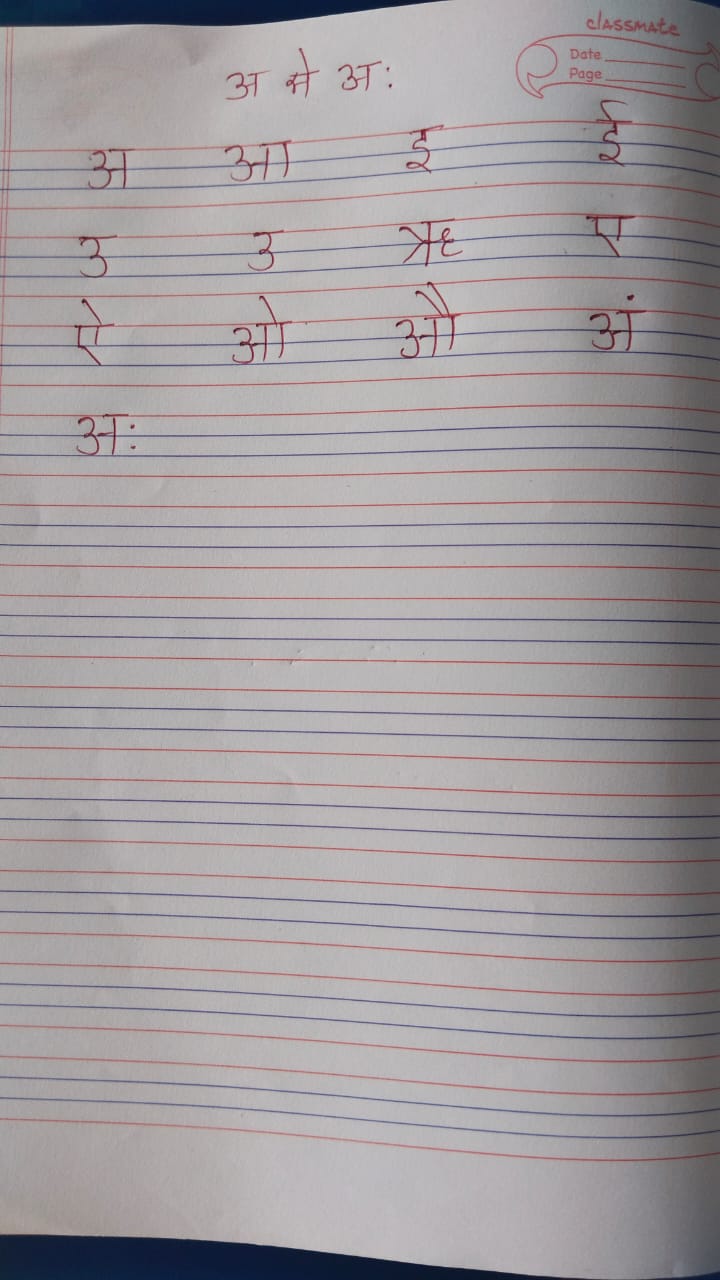 classmate
Date
Page
अ से अः
अ आ इ ई
उ उ ऋ ए
ऐ ओ औ अं
अः